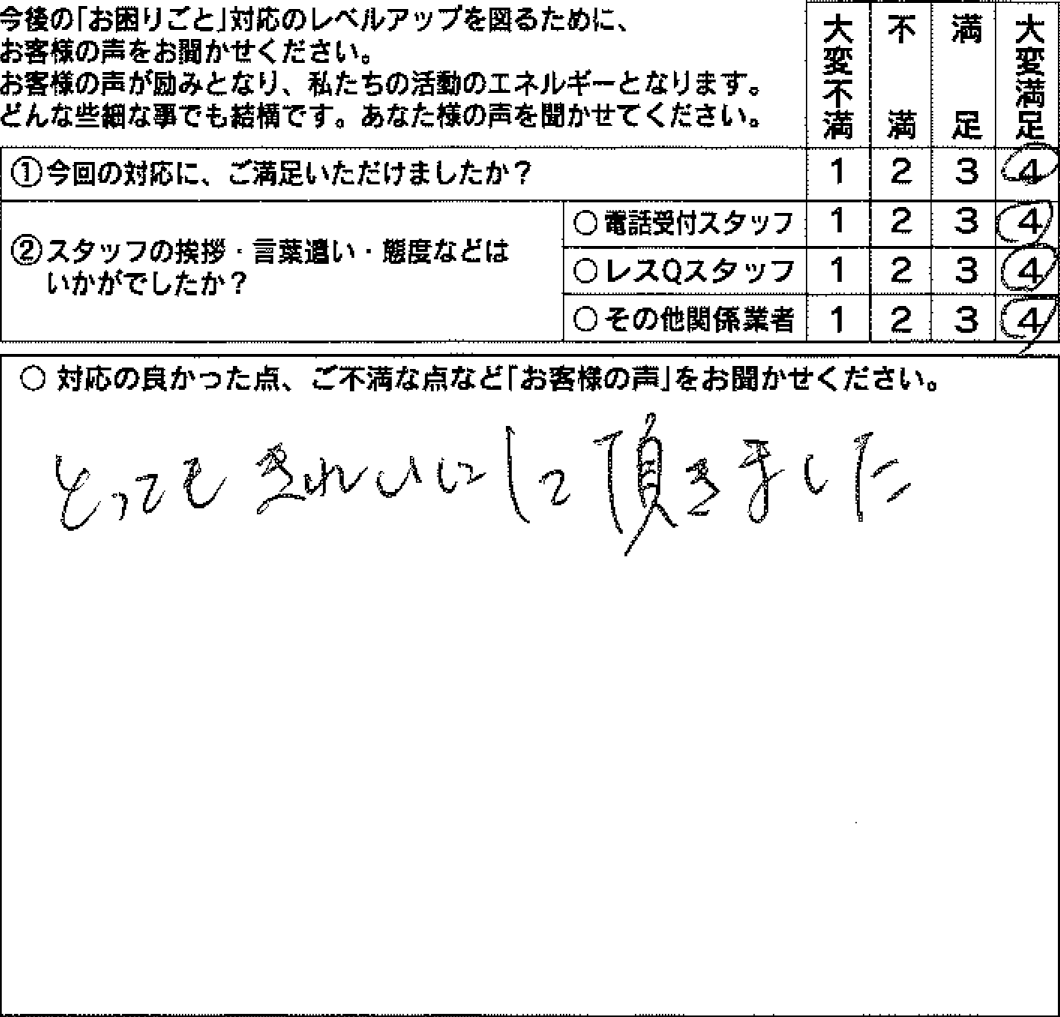 今後の「お困りごと」対応のレベルアップを図るために、
お客様の声をお聞かせください。
お客様の声が励みとなり、私たちの活動のエネルギーとなります。
どんな些細な事でも結構です。あなた様の声を聞かせてください。
大変不満 不満 満足 大変満足
①今回の対応に、ご満足いただけましたか？ 1 2 3 4
②スタッフの挨拶・言葉遣い・態度などは
いかがでしたか？
○電話受付スタッフ 1 2 3 4
○レスQスタッフ 1 2 3 4
○その他関係業者 1 2 3 4
○ 対応の良かった点、ご不満な点など「お客様の声」をお聞かせください。
とっても きれいにして頂きました